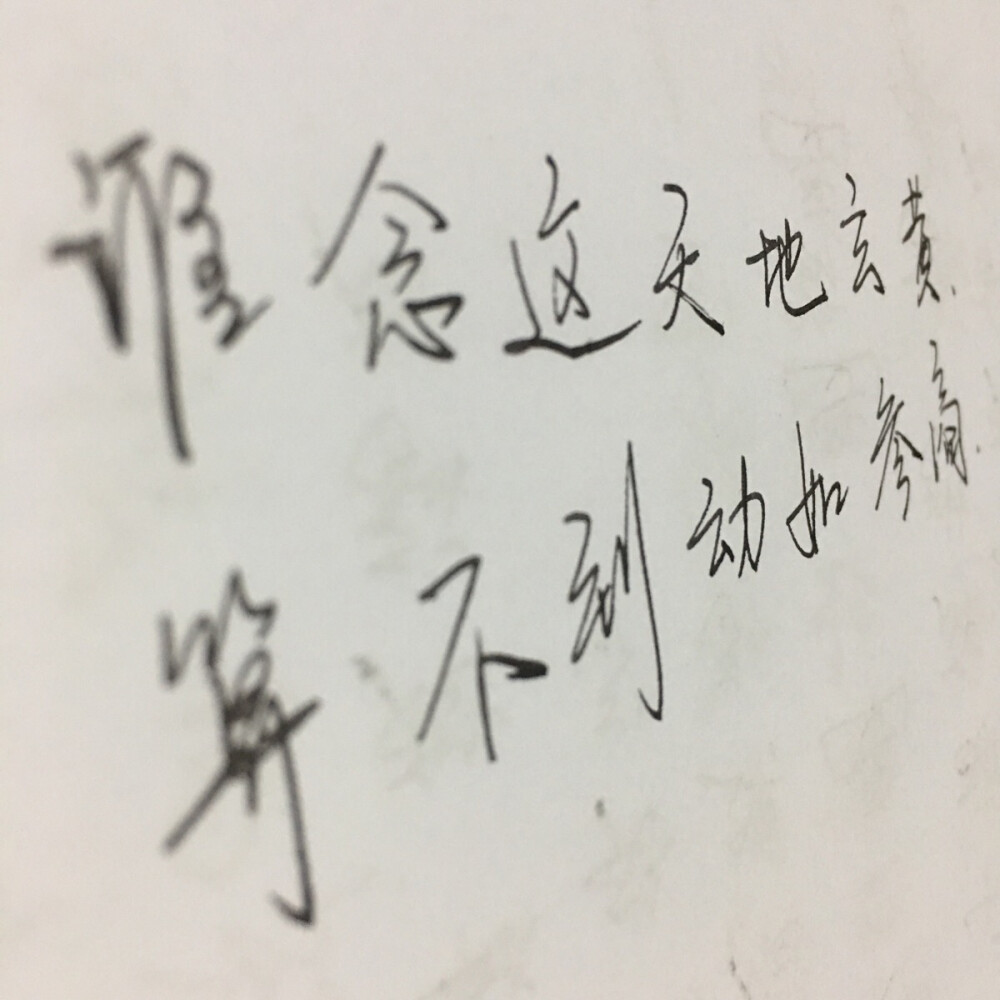 谁念这天地玄黄、
算不到动如参商.